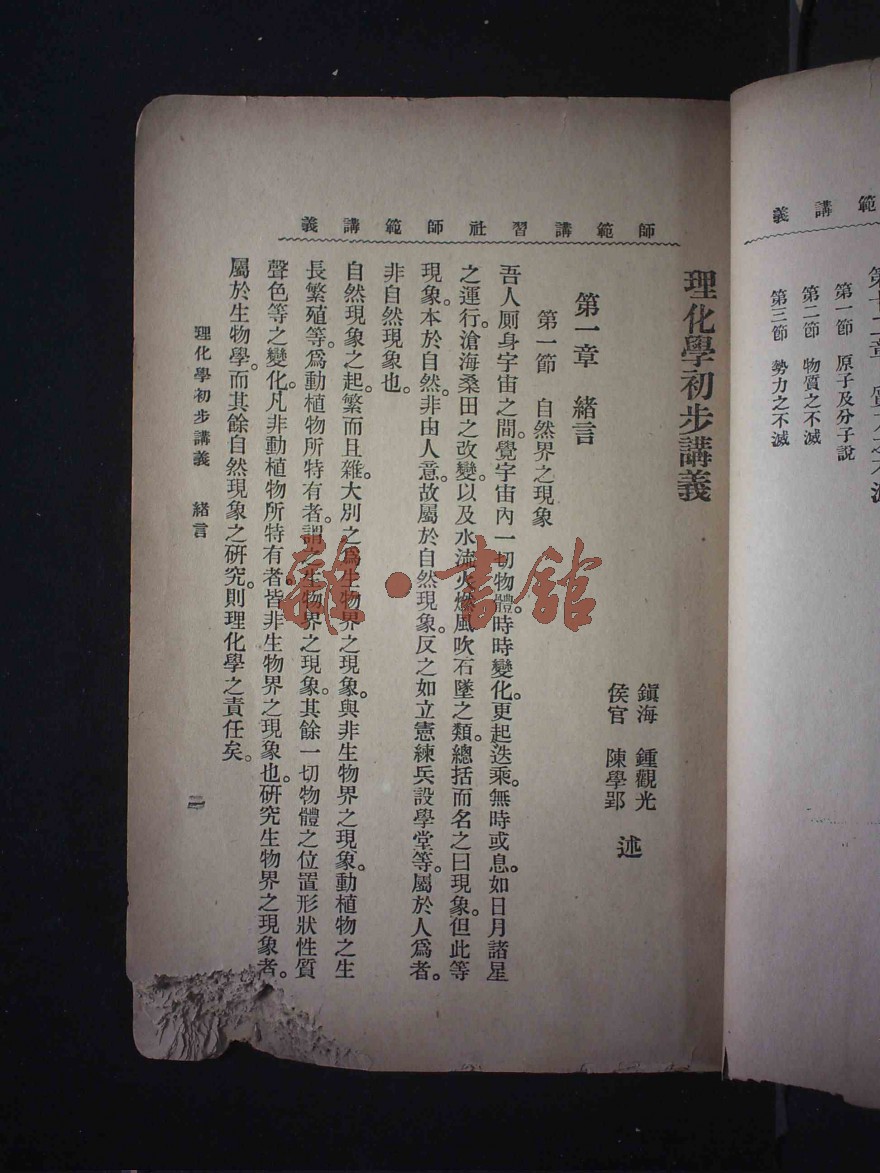 師範講習社師範講義
理化學初步講義
鎭海 鍾觀光
侯官 陳學郢
述
第一章 緒言
第一節 自然界之現象
吾人厠身宇宙之間。覺宇宙內一切物體。時時變化。更起迭乘。無時或息。如日月諸星
之運行。滄海桑田之改變。以及水流火燃風吹石墜之類。總括而名之曰現象。但此等
現象。本於自然。非由人意。故屬於自然現象。反之如立憲練兵設學堂等。屬於人爲者。
非自然現象也。
自然現象之起。繁而且雜。大別之爲生物界之現象。與非生物界之現象。動植物之生
長繁殖等。爲動植物所特有者。謂之生物界之現象。其餘一切物體之位置形狀性質
聲色等之變化。凡非動植物所特有者。皆非生物界之現象也。研究生物界之現象者。
屬於生物學。而其餘自然現象之研究。則理化學之責任矣。
理化學初步講義 緒言
範講義
第一節 原子及分子說
第二節 物質之不滅
第三節 勢力之不滅
龍·書館